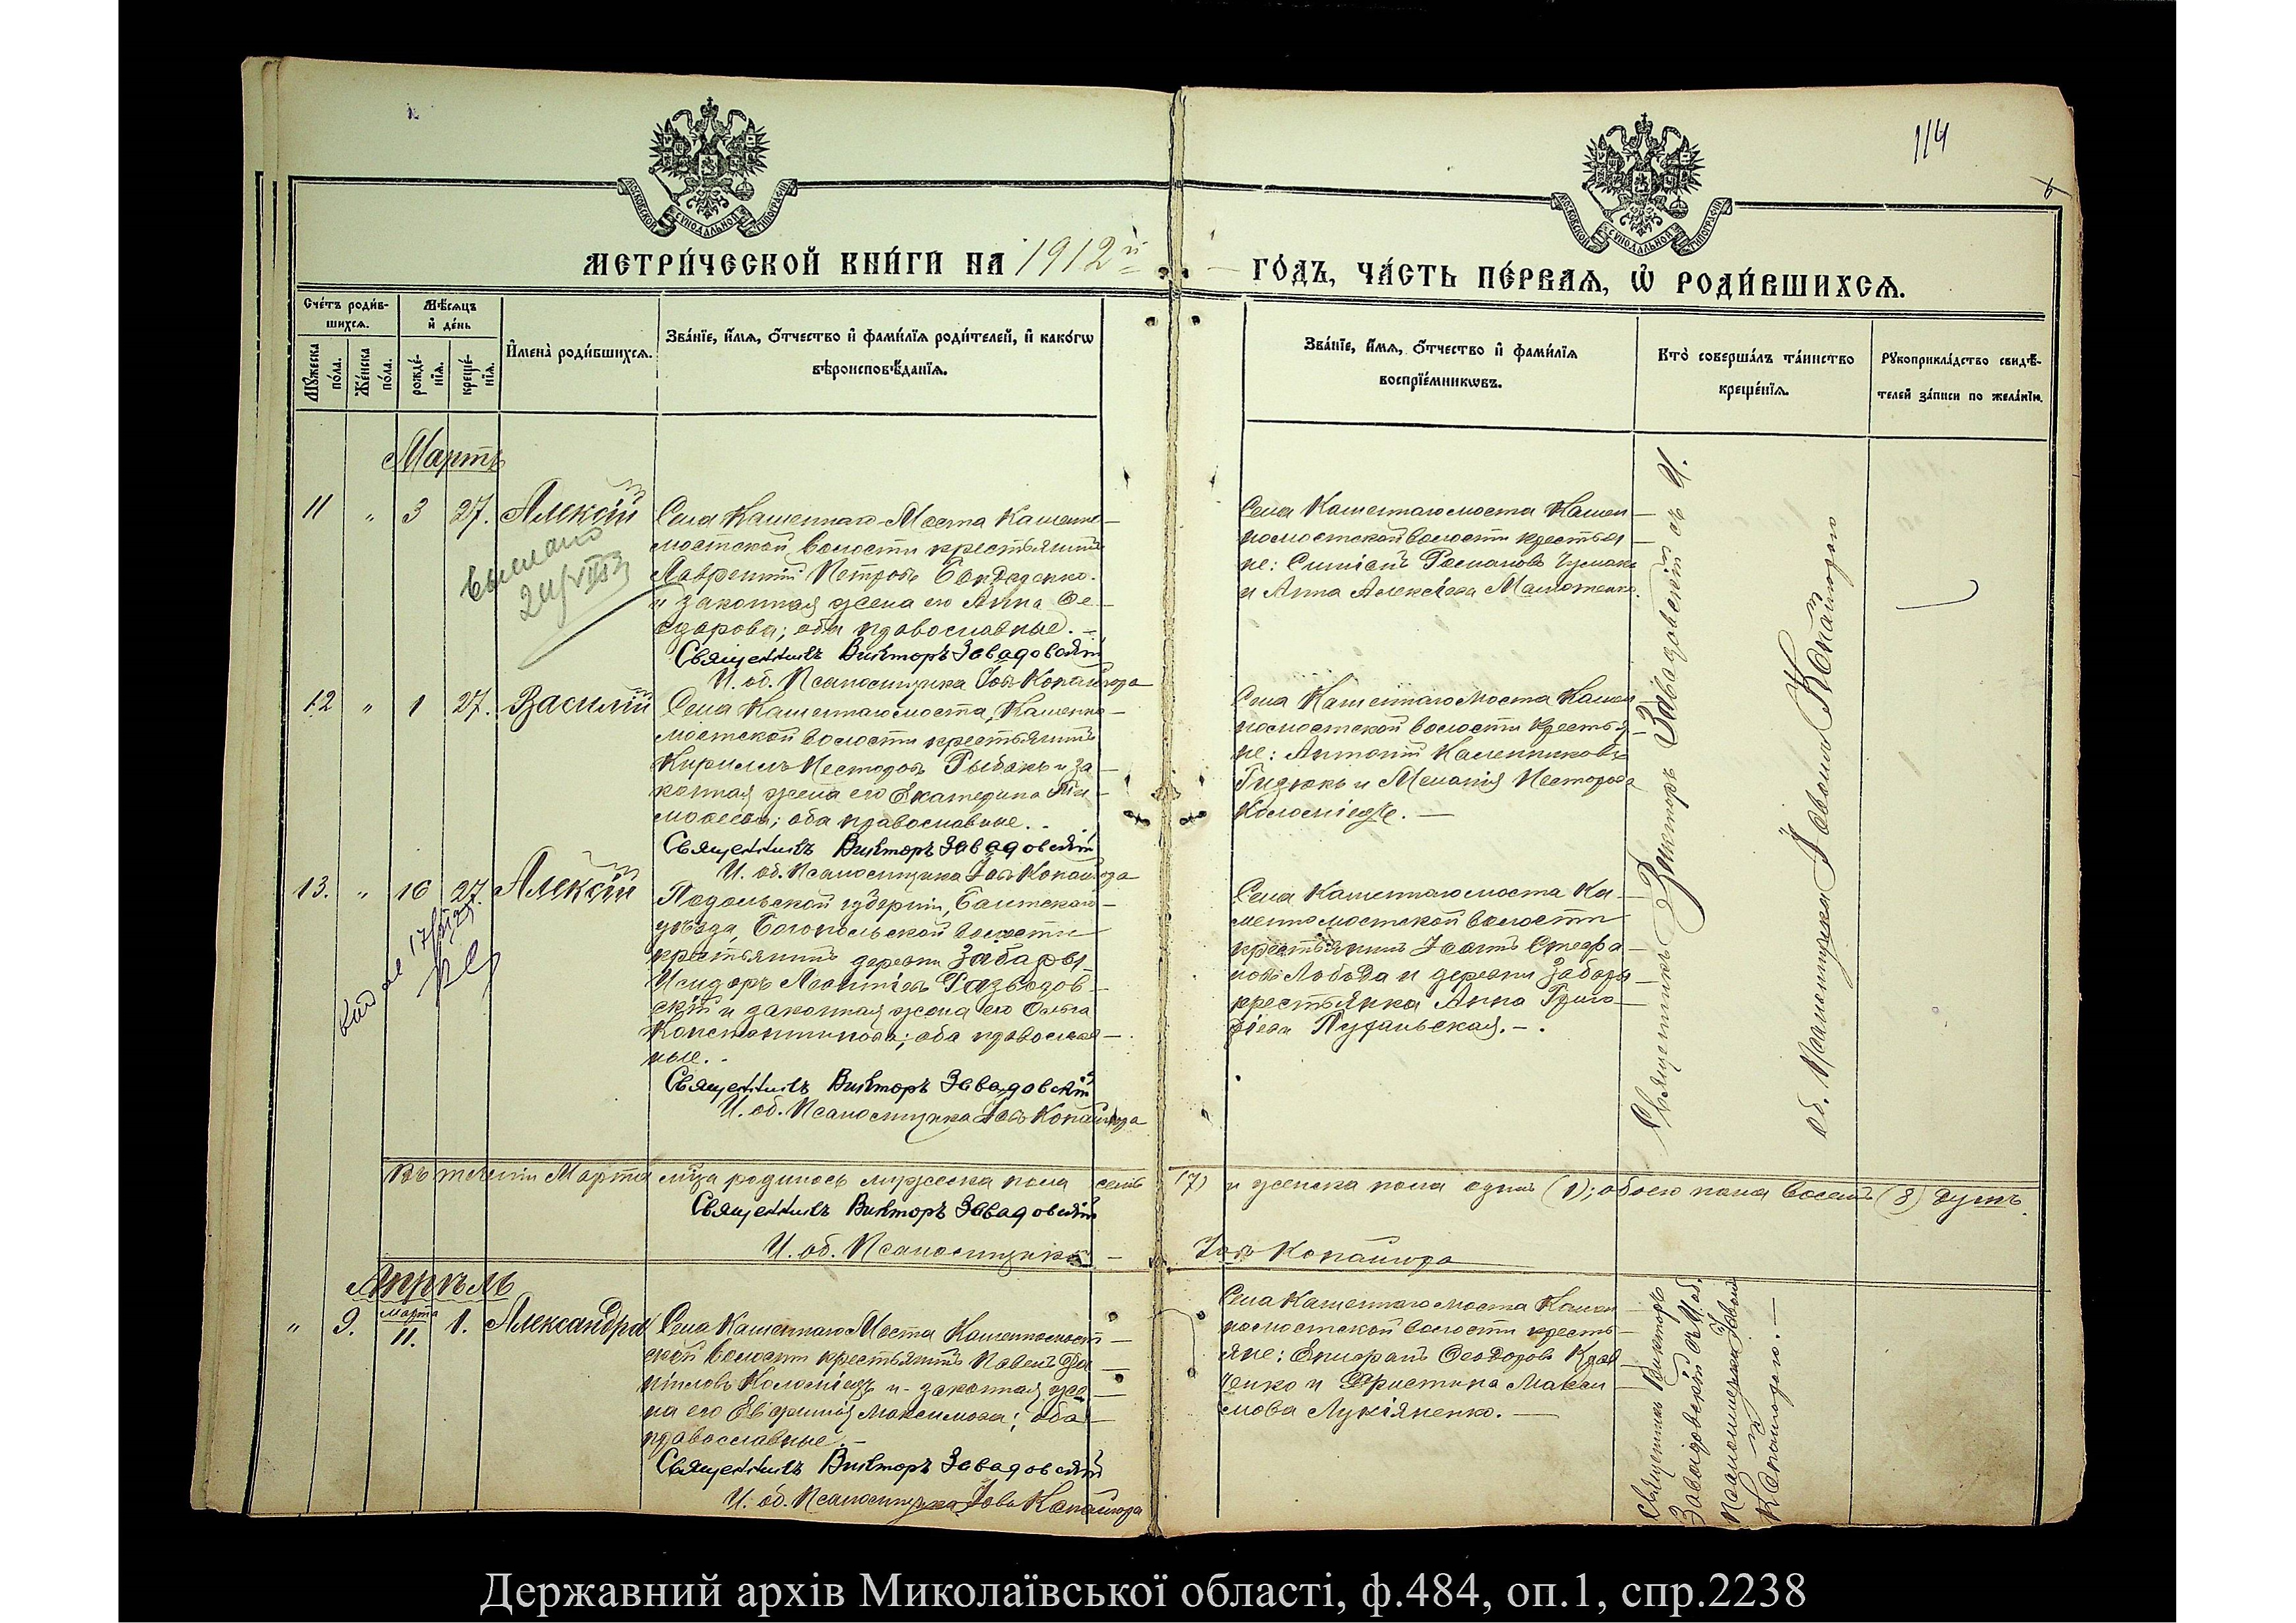 114
МОСКОВСКОЙ СѴНОДАЛЬНОЙ ТИПОГРАФІИ
МОСКОВСКОЙ СѴНОДАЛЬНОЙ ТИПОГРАФІИ
МЕТРИ́ЧЕСКОЙ КНИ́ГИ НА 1912й
ГО́ДЪ, ЧА́СТЬ ПЕ́РВАѦ, Ѡ҆ РОДИ́ВШИХСѦ.
Сче́тъ роди́в-
шихсѧ.
Мѣ́сѧцъ
и҆ де́нь
Мꙋ́жеска
по́ла.
Же́нска
по́ла.
рожде́-
нїѧ.
креще́-
нїѧ.
И҆мена̀ роди́вшихсѧ.
Зва́нїе, и҆́мѧ, ѻ҆́тчество и҆ фами́лїѧ роди́телей, и҆ како́гѡ
вѣроисповѣ́данїѧ.
Зва́нїе, и҆́мѧ, ѻ҆́тчество и҆ фами́лїѧ
воспрїе́мникѡвъ.
Кто̀ соверша́лъ та́инство
креще́нїѧ.
Рꙋкоприкла́дство свидѣ́-
телей за́писи по жела́нїю.
Мартъ
11 " 3 27. Алексій
выслано
Села Каменнаго-Моста Каменно-
мостской волости крестьянинъ
Лаврентій Петровъ Бондаренко
и законная жена его Анна Ѳе-
одорова; оба православные. -
Священникъ Викторъ Завадовскій
И. об. Псаломщика Іовъ Копайгора
Села Каменнаго моста Камен-
номостской волости крестья-
не: Симеонъ Романовъ Чумакъ
и Анна Алексіева
12 " 1 27. Василій
Села Каменнаго моста, Каменно-
мостской волости крестьянинъ
Кириллъ Несторовъ Рыбакъ и за-
конная жена его Екатерина Ти-
моѳеева; оба православные. -
Священникъ Викторъ Завадовскій
И. об. Псаломщика Іовъ Копайгора
Села Каменнаго Моста Камен-
номостской волости крестья-
не: Антоній Каленниковъ
и Меланія Несторова
Коломіецъ. -
13. " 16 27. Алексій
Подольской губерніи, Балтскаго
уѣзда, Богопольской волости
крестьянинъ деревни Забары
Исидоръ Леонтіевъ Развадов-
скій и законная жена его Ольга
Константинова; оба православ-
ные. -
Священникъ Викторъ Завадовскій
И. об. Псаломщика Іовъ Копайгора
Села Каменнаго моста Ка-
менномостской волости
крестьянинъ Іоаннъ Стефа-
новъ Лобода и деревни Забары
крестьянка Анна Григо-
ріева - .
Священникъ Викторъ Завадовскій съ И.
об. Псаломщика Іовомъ Копайгорою
Въ теченіи Марта м-ца родилось мужеска пола семь (7) и женска пола одинъ (1); обоего пола восемь (8) душъ.
Священникъ Викторъ Завадовскій
И. об. Псаломщика - Іовъ Копайгора
Апрѣль
" 9. Марта 11. 1. Александра
Села Каменнаго Моста Каменномост-
ской волости крестьянинъ Павелъ Да-
ніиловъ Коломіецъ и законная же-
на его Евфимія Максимова; оба
православные -
Священникъ Викторъ Завадовскій
И. об. Псаломщика Іовъ Копайгора
Села Каменнаго моста Камен-
номостской волости кресть-
яне: Епифанъ Ѳеодоровъ Крав-
ченко и Христина Макси-
мова Лукіяненко. -
Священникъ Викторъ
Завадовскій съ И. об.
Псаломщика Іовомъ
Копайгорою. -
Державний архів Миколаївської області, ф.484, оп.1, спр.2238